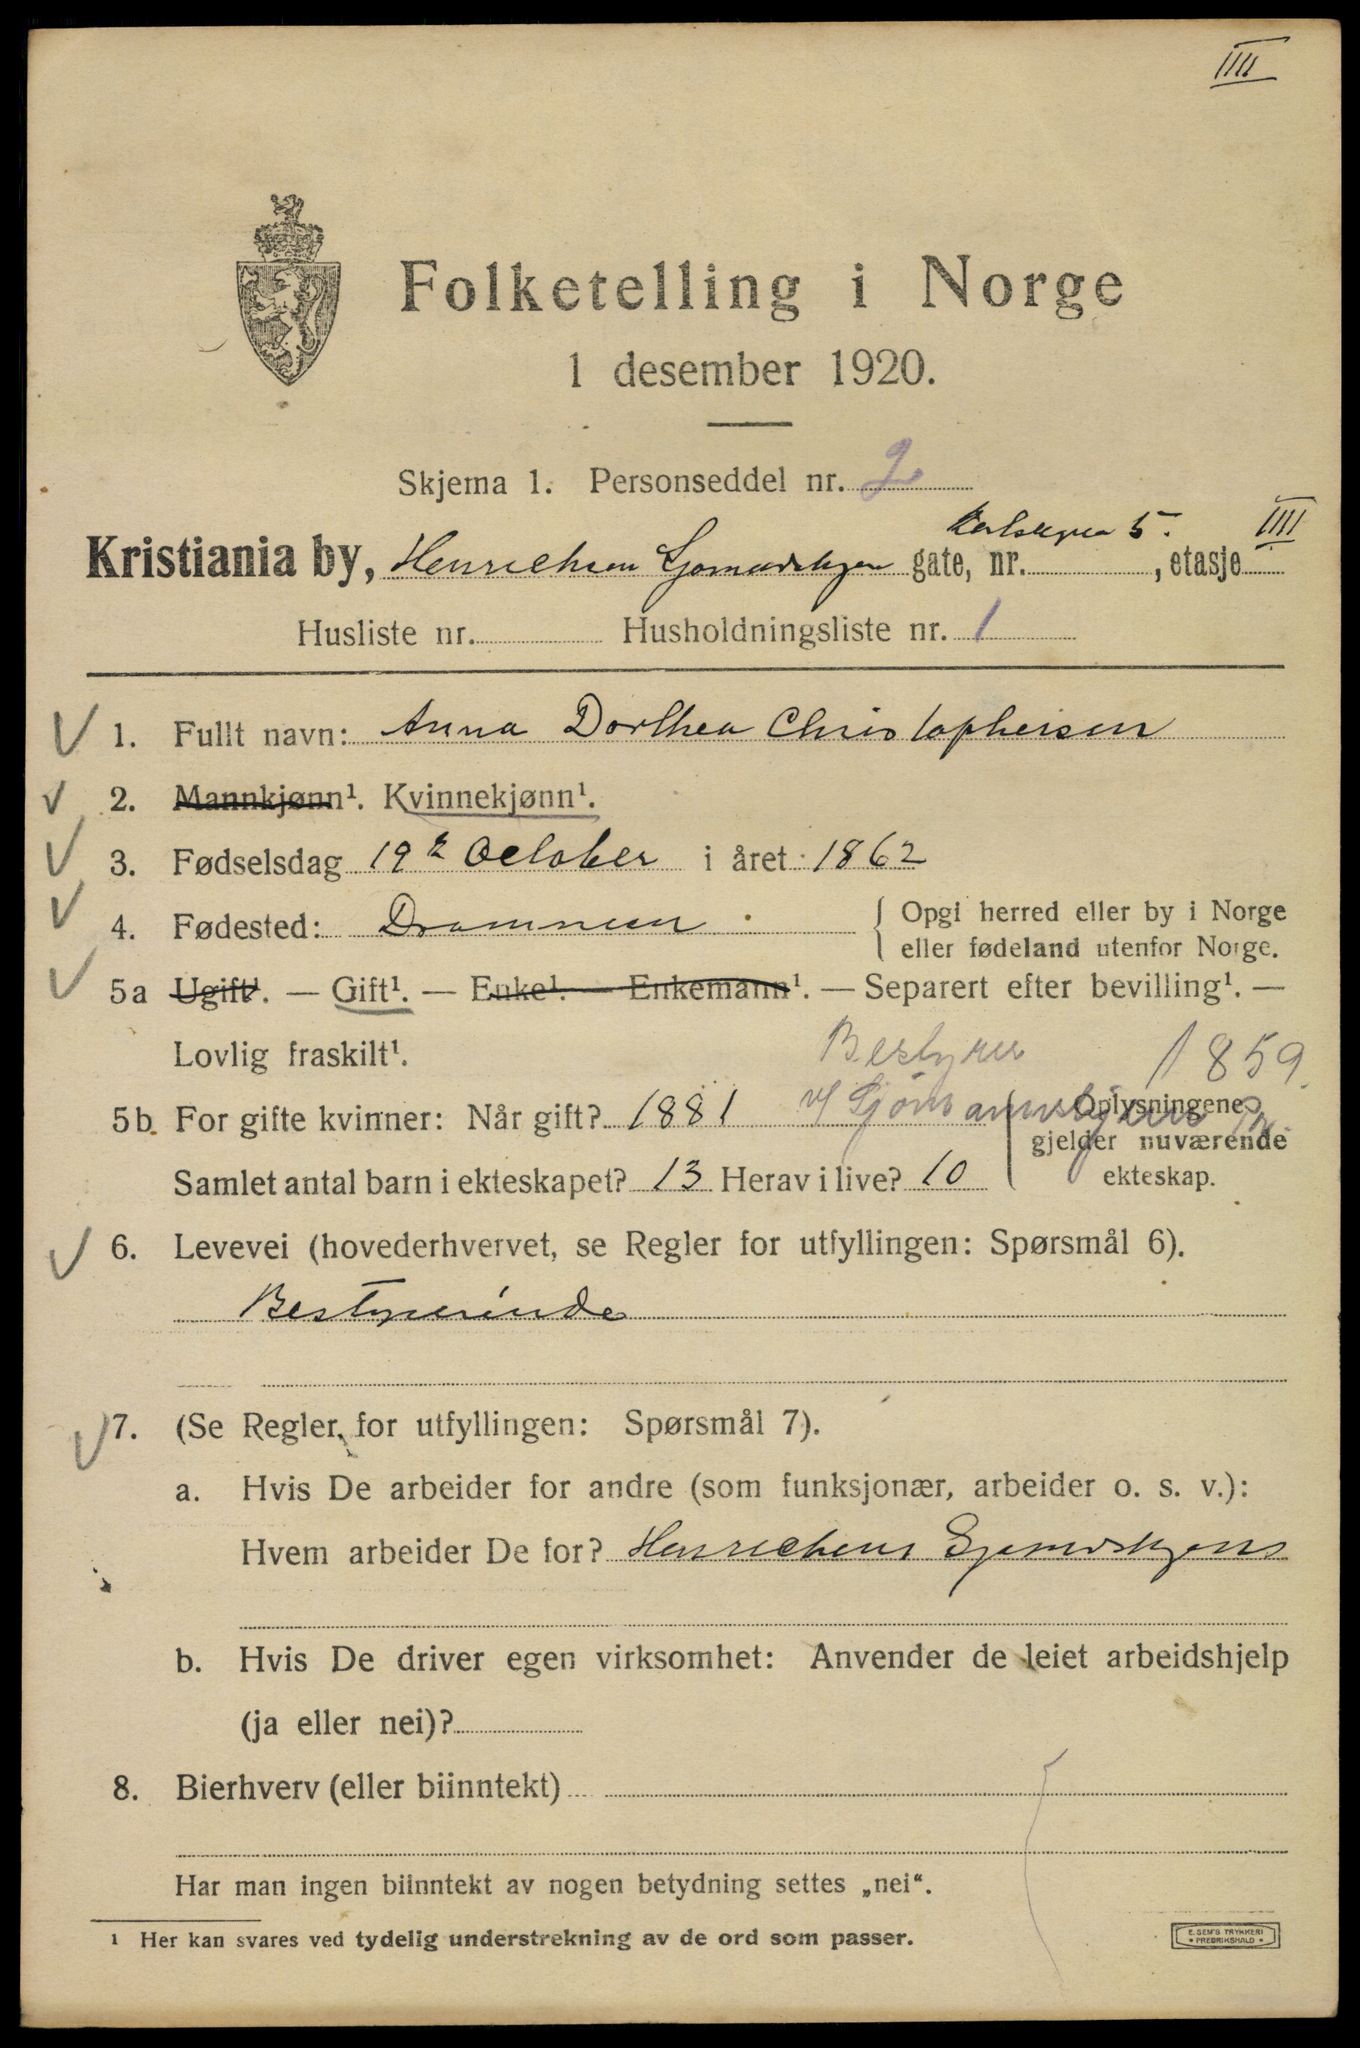 IIII
Folketelling i Norge
1 desember 1920.
Skjema 1. Personseddel nr. 2
5. IIII
Kristiania by, Henrichsen gate, nr. , etasje
Husliste nr. Husholdningsliste nr. 1
1. Fullt navn: Anna Dorthea Christophersen
2. Mannkjønn¹. Kvinnekjønn¹.
3. Fødselsdag 19 October i året 1862
4. Fødested: Drammen { Opgi herred eller by i Norge
eller fødeland utenfor Norge.
5a Ugift¹. — Gift¹. — Enke¹. — Enkemann¹. — Separert efter bevilling¹. —
Lovlig fraskilt¹.
Bestyrer 1859
5b For gifte kvinner: Når gift? 1881 Oplysningene
gjelder nuværende
Samlet antal barn i ekteskapet? 13 Herav i live? 10 ekteskap.
6. Levevei (hovederhvervet, se Regler for utfyllingen: Spørsmål 6).
Bestyrerinde
7. (Se Regler for utfyllingen: Spørsmål 7).
a. Hvis De arbeider for andre (som funksjonær, arbeider o. s. v.):
Hvem arbeider De for? Henrichens
b. Hvis De driver egen virksomhet: Anvender de leiet arbeidshjelp
(ja eller nei)?
8. Bierhverv (eller biinntekt)
Har man ingen biinntekt av nogen betydning settes „nei“.
¹ Her kan svares ved tydelig understrekning av de ord som passer.
E. SEM'S TRYKKERI
• FREDRIKSHALD •